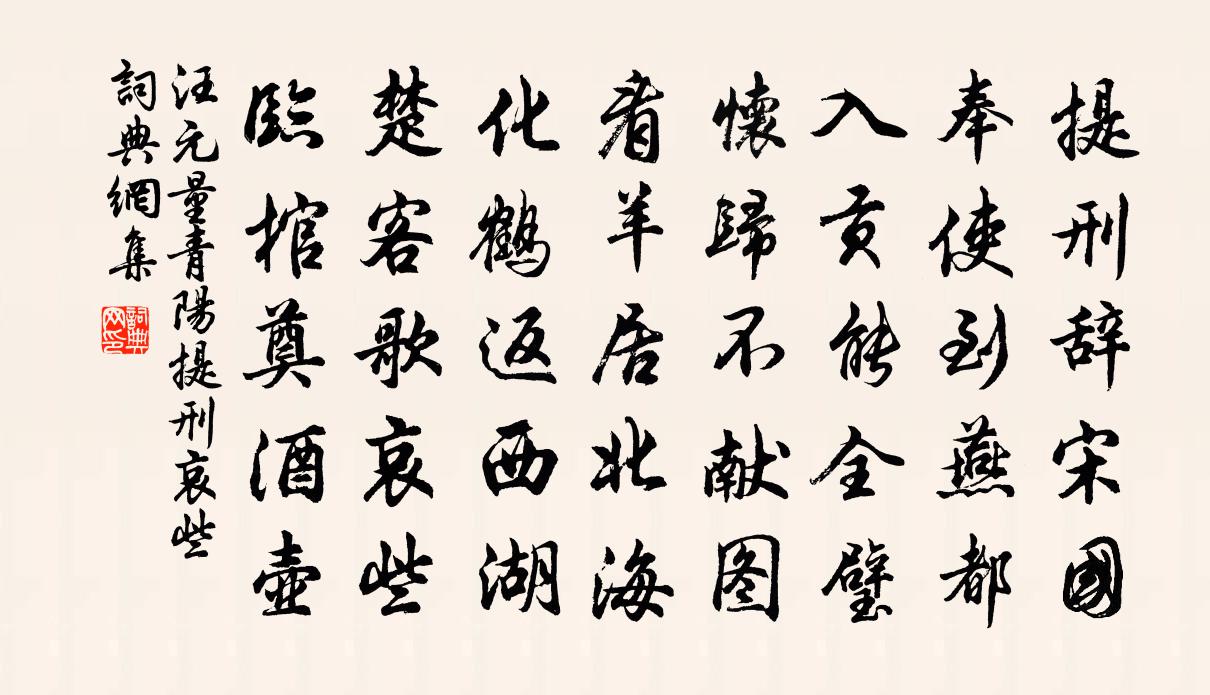 提刑辞宋國
奉使到燕都
入贡能全璧
懷歸不献图
看羊居北海
化鹤返西湖
楚客歌哀些
臨棺奠酒壶
汪元量青陽提刑哀些
詞典網集
詞典网印